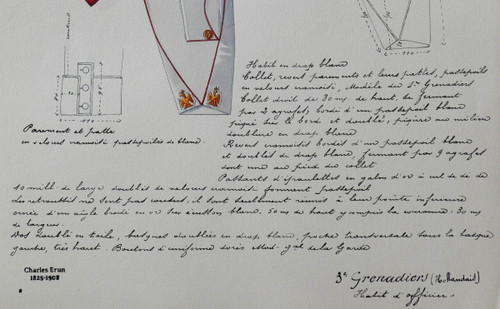 Habit en drap blanc
Collet, revers parements et leurs pattes, passepoils
en velours cramoisi, Modèle du 1er Grenadiers
Collet droit de 30 mm de haut, se fermant
par 2 agrafes, bordé d'un passepoil blanc
piqué sur le bord et doublé, piqûre au milieu
doublure en drap blanc
Revers cramoisi bordés d'un passepoil blanc
et doublés de drap blanc, fermant par 9 agrafes
dont une au pied du collet
Passants d'épaulettes en galon d'or à cul de dé de
10 mill de large doublés de velours cramoisi formant passepoil
Les retroussis ne sont pas cousus, ils sont seulement réunis à leur pointe inférieure
ornée d'un aigle brodé en or sur écusson blanc. 50 mm de haut y compris la couronne. 30 mm
de largeur.
Dos doublé en toile, basques doublées en drap blanc, poche transversale sous la basque
gauche, très haut. Boutons d'uniforme dorés Mod. gal de la Garde
Parement et patte
en velours cramoisi passepoilés de blanc.
Charles Brun
1825-1908
3e Grenadiers (Hollandais)
Habit d'officier.